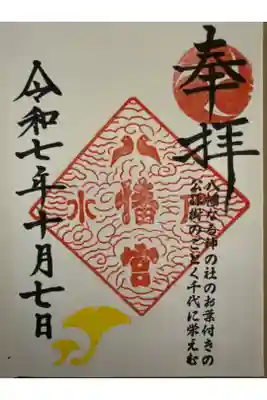 奉拝
八幡なる神の社のお葉付きの
公孫樹のごとく千代に栄えむ
八幡宮
水
令和七年十月七日